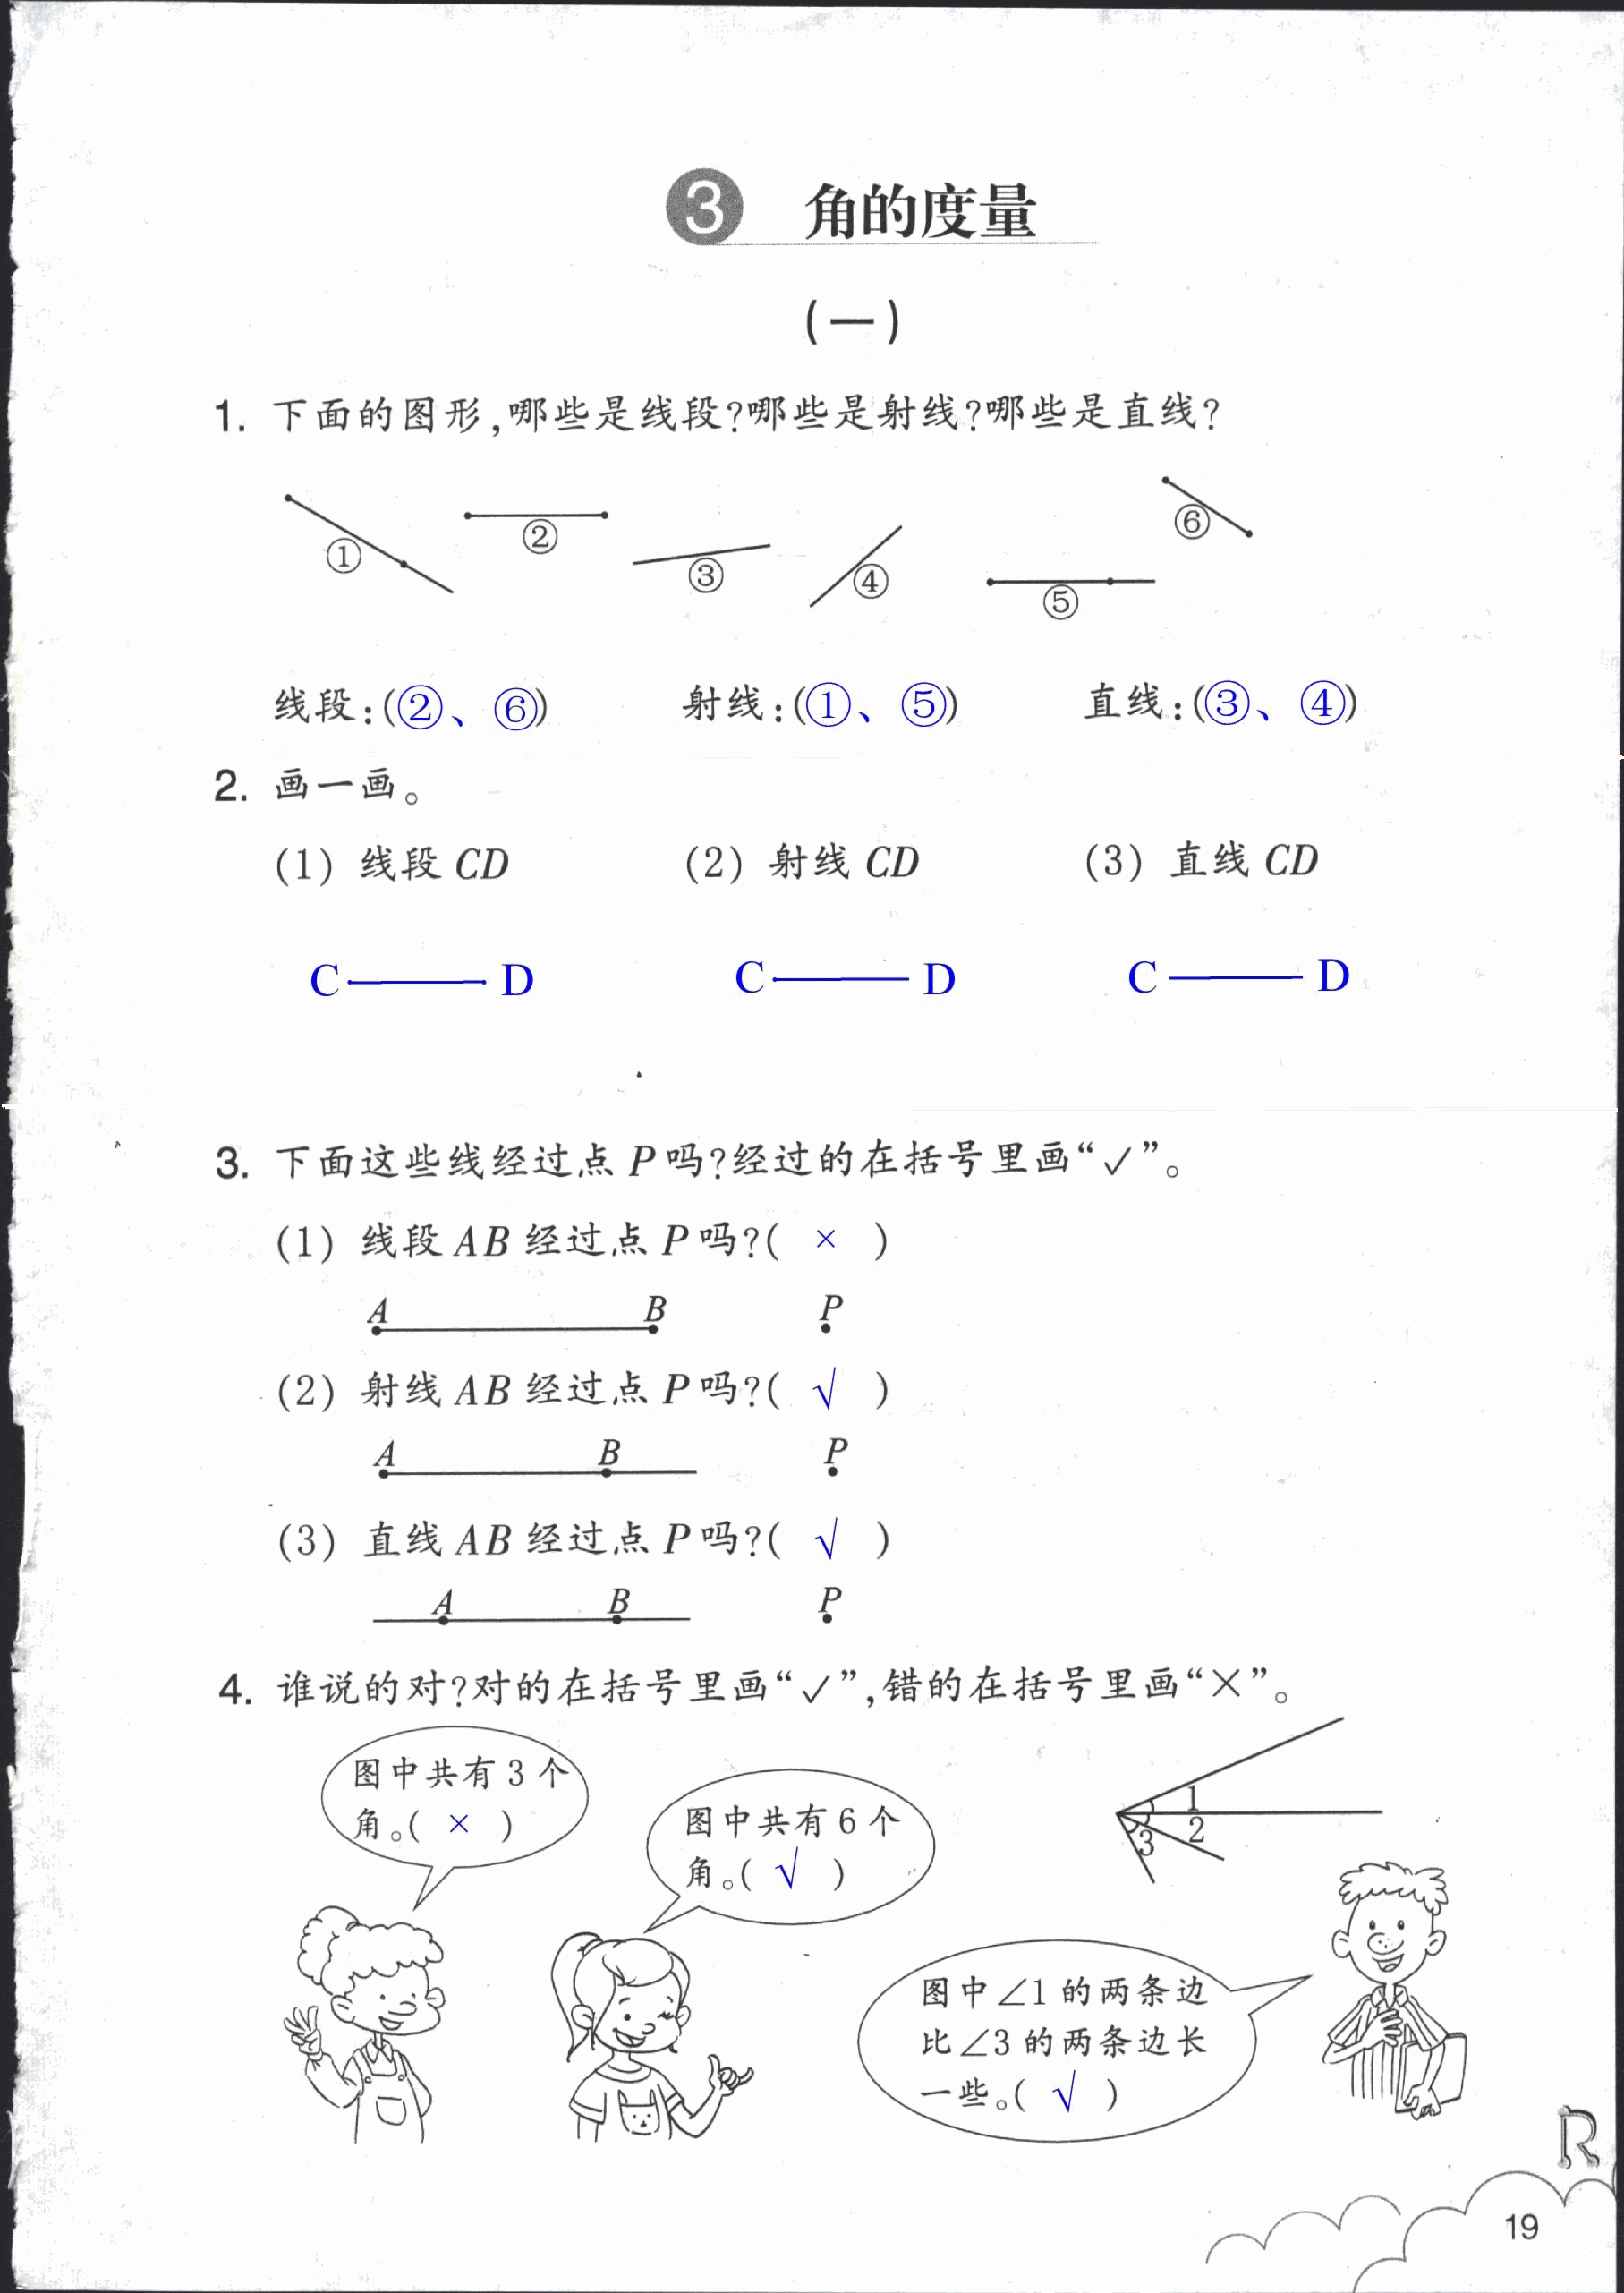 3 角的度量
(一)
1. 下面的图形,哪些是线段?哪些是射线?哪些是直线?
① ② ③ ④ ⑤ ⑥
线段:(②、⑥) 射线:(①、⑤) 直线:(③、④)
2. 画一画。
(1) 线段 CD (2) 射线 CD (3) 直线 CD
C D C D C D
3. 下面这些线经过点 P 吗?经过的在括号里画“✓”。
(1) 线段 AB 经过点 P 吗?( × )
A B P
(2) 射线 AB 经过点 P 吗?( √ )
A B P
(3) 直线 AB 经过点 P 吗?( √ )
A B P
4. 谁说的对?对的在括号里画“✓”,错的在括号里画“×”。
图中共有 3 个
角。( × )
图中共有 6 个
角。( √ )
1
2
3
图中∠1 的两条边
比∠3 的两条边长
一些。( √ )
R
19